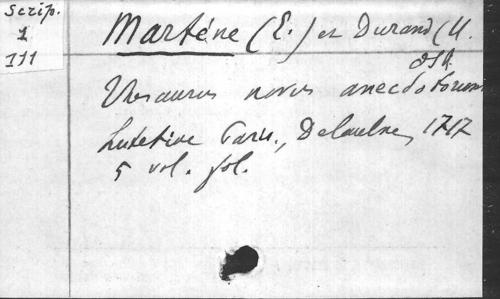 Scrip.
1
111
Martène (E.) et Durand (U.
OSB
Thesaurus novus anecdotorum
Lutetiae Paris., Delaulne, 1717
5 vol. fol.